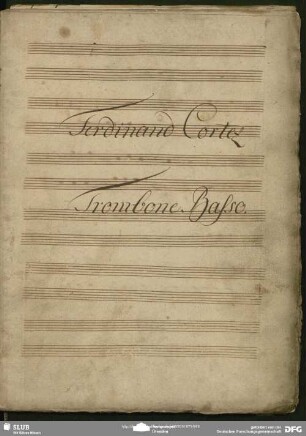 Ferdinand Cortez
Trombone Basso.
SLUB
Wir führen Wissen.
Deutsche Forschungsgemeinschaft
DFG